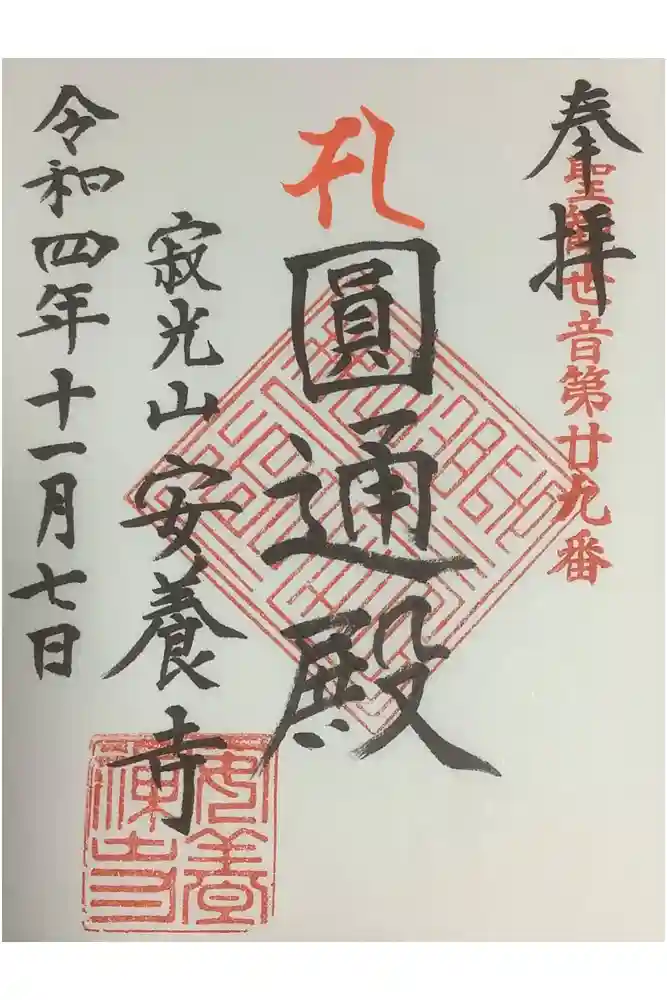 奉拝
聖観世音第廿九番
圓通殿
寂光山安養寺
令和四年十一月七日
安養禅寺